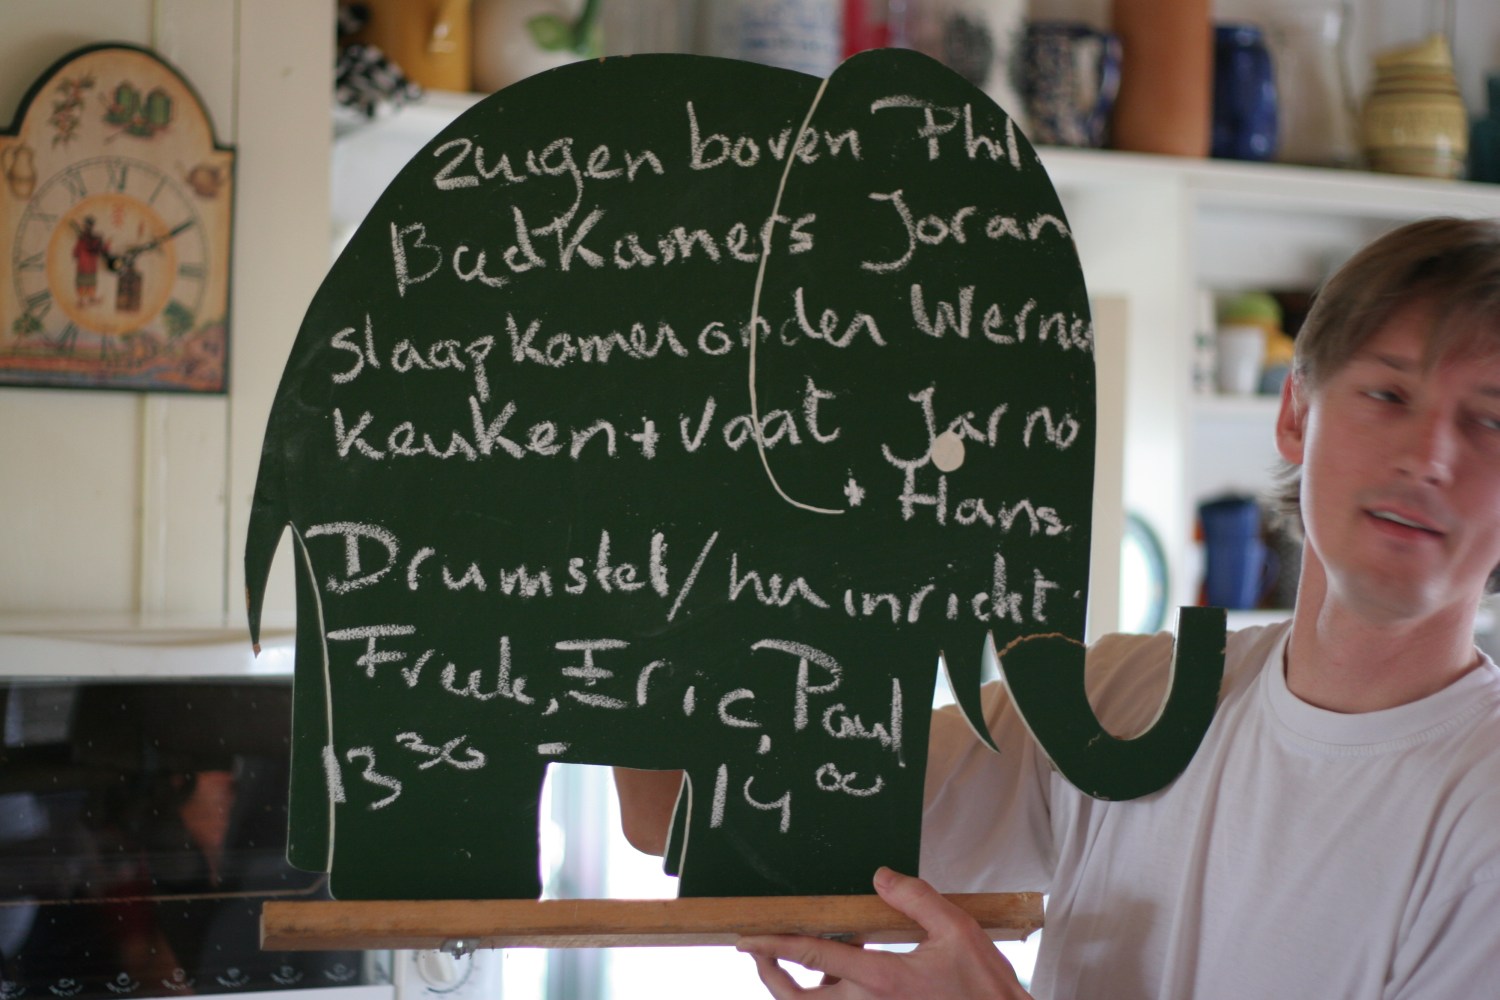 zuigen boven Phil.
Badkamers Joran
slaapkamer onder Wernie
keuken + vaat Jarno
+ Hans.
Drumstel / her inricht.
Freek, Eric, Paul
13³⁰ - 14⁰⁰